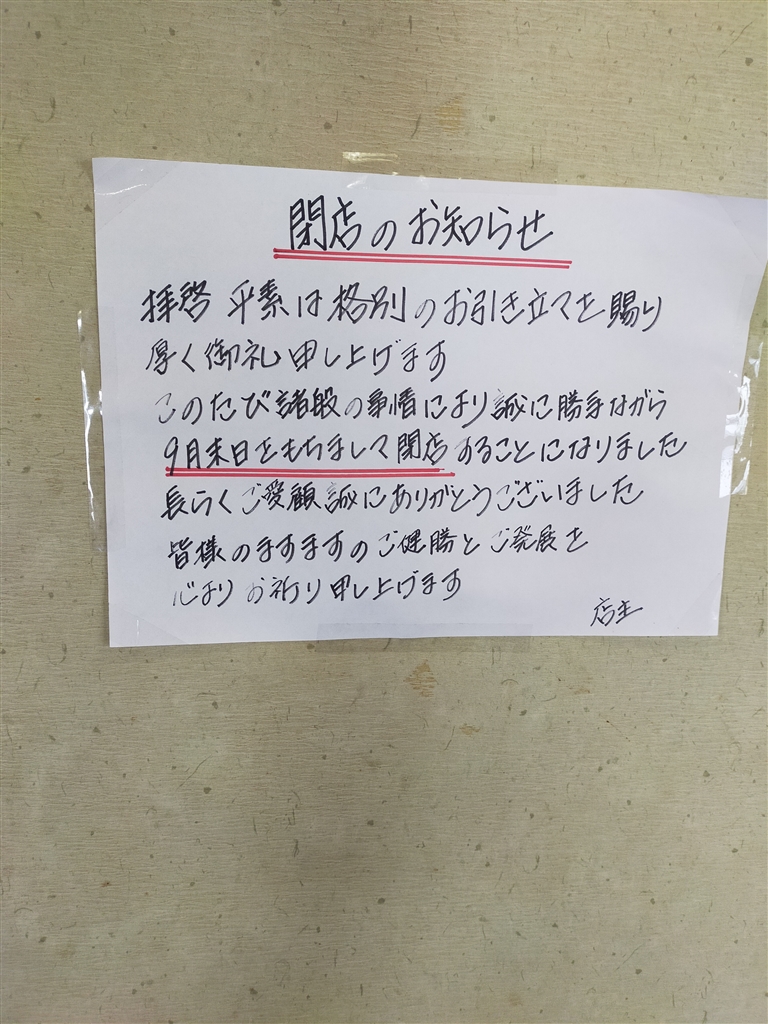 閉店のお知らせ
拝啓 平素は格別のお引き立てを賜り
厚く御礼申し上げます
このたび諸般の事情により誠に勝手ながら
9月末日をもちまして閉店することになりました
長らくご愛顧誠にありがとうございました
皆様のますますのご健勝とご発展を
心よりお祈り申し上げます
店主